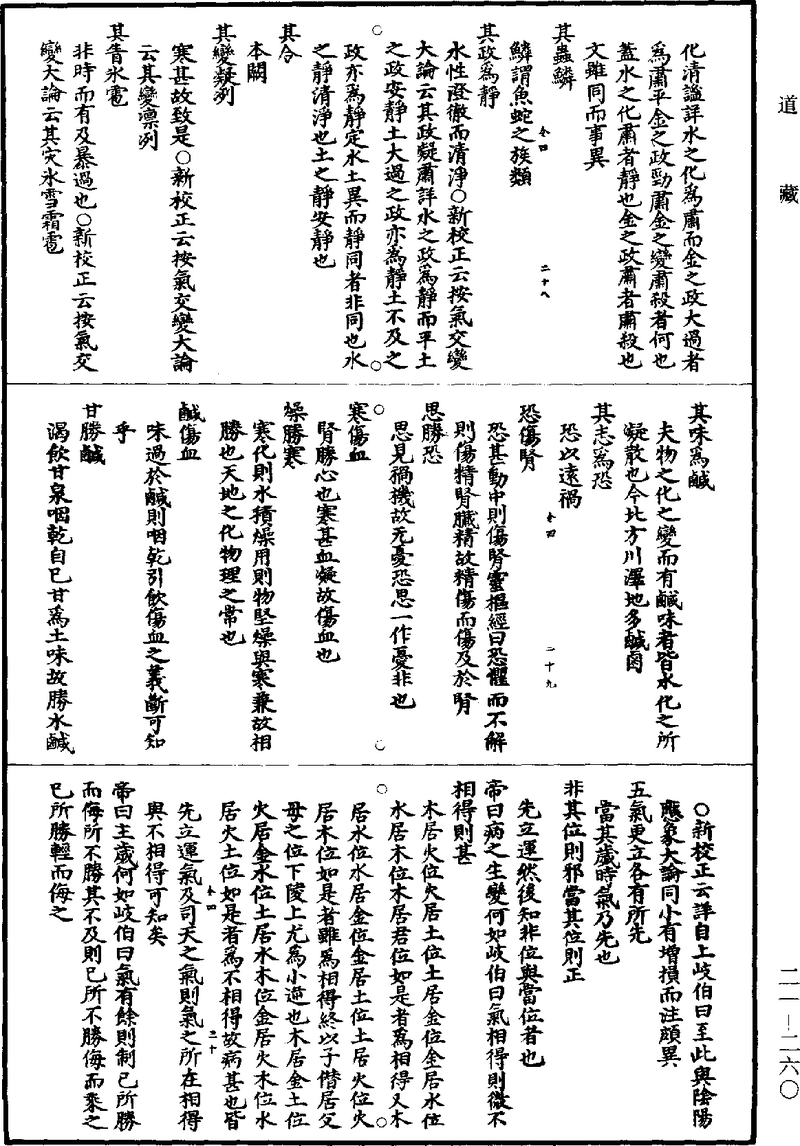 道藏
化清謐詳水之化為肅而金之政大過者
為肅平金之政勁肅金之變肅殺者何也
蓋水之化肅者靜也金之政肅者肅殺也
文雖同而事異
其蟲鱗
鱗謂魚蛇之族類
二十八
其政為靜
水性澄徹而清淨○新校正云按氣交變
大論云其政凝肅詳水之政為靜而平土
之政安靜土大過之政亦為靜土不及之
政亦為靜定水土異而靜同者非同也水
之靜清淨也土之靜安靜也
其令
本闕
其變凝冽
寒甚故致是○新校正云按氣交變大論
云其變凛冽
其眚氷雹
非時而有及暴過也○新校正云按氣交
變大論云其灾氷雪霜雹
其味為鹹
夫物之化之變而有鹹味者皆水化之所
凝散也今北方川澤地多鹹鹵
其志為恐
恐以遠禍
二十九
恐傷腎
恐甚動中則傷腎靈樞經曰恐懼而不解
則傷精腎臟精故精傷而傷及於腎
思勝恐
思見禍機故无憂恐思一作憂非也
寒傷血
腎勝心也寒甚血凝故傷血也
燥勝寒
寒化則水積燥用則物堅燥與寒兼故相
勝也天地之化物理之常也
鹹傷血
味過於鹹則咽乾引飲傷血之義斷可知
乎
甘勝鹹
渴飲甘泉咽乾自已甘為土味故勝水鹹
○新校正云詳自上岐伯曰至此與陰陽
應象大論同小有增損而注頗異
五氣更立各有所先
當其歲時氣乃先也
非其位則邪當其位則正
先立運然後知非位與當位者也
帝曰病之生變何如岐伯曰氣相得則微不
相得則甚
木居火位火居土位土居金位金居水位
水居木位木居君位如是者為相得又木
居水位水居金位金居土位土居火位火
居木位如是者雖為相得終以子僭居父
母之位下陵上尤為小逆也木居金土位
火居金水位土居水木位金居火木位水
居火土位如是者為不相得故病甚也皆
先立運氣及司天之氣則氣之所在相得
與不相得可知矣
三十
帝曰主歲何如岐伯曰氣有餘則制己所勝
而侮所不勝其不及則己所不勝侮而乘之
己所勝輕而侮之
二一－二六〇